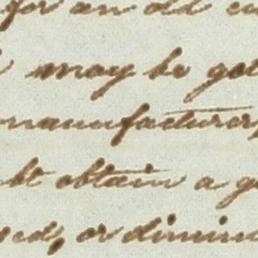 for an old
may be got
manufacturer,
obtain a
or dimin